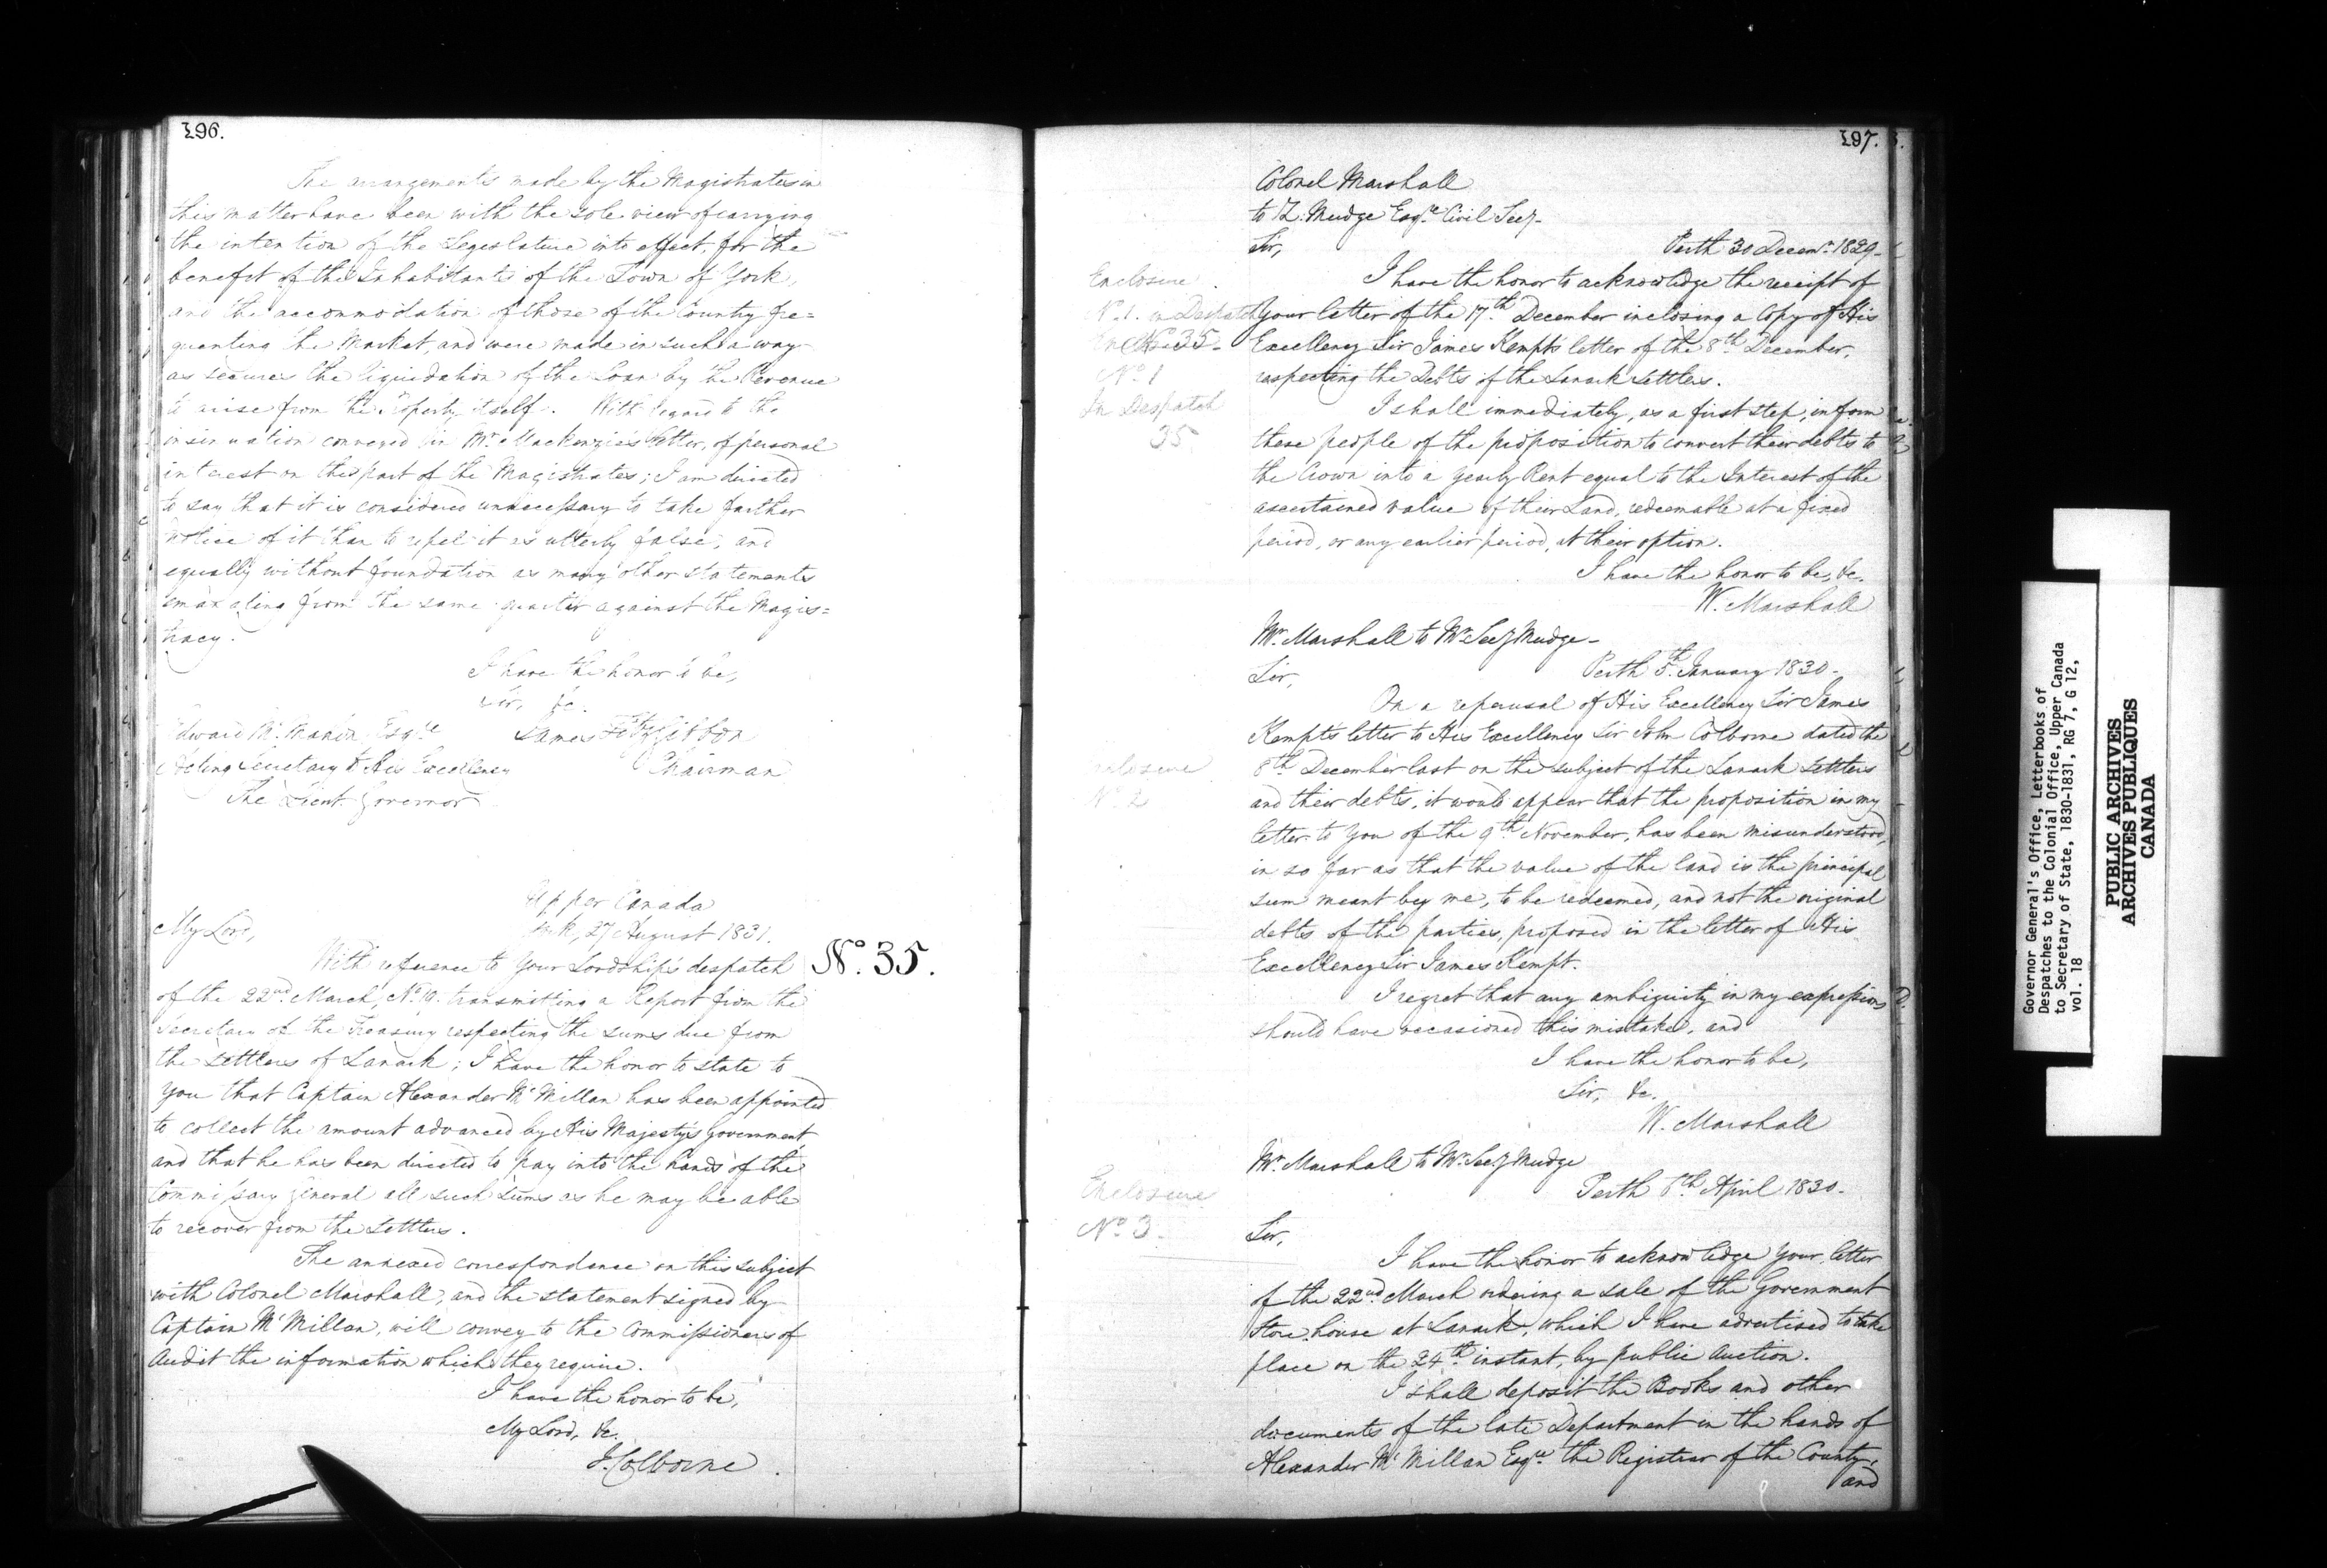 296.
The arrangements made by the Magistrates in
this matter have been with the sole view of carrying
the intention of the Legislature into effect, for the
benefit of the Inhabitants of the Town of York,
and the accommodation of those of the Country fre=
quenting the Market, and were made in such a way
as secures the liquidation of the Loan by the Revenue
to arise from the Property itself. With regard to the
insinuation conveyed in Mr. Mackenzie's letter, of personal
interest on the part of the Magistrates; I am directed
to say that it is considered unnecessary to take farther
notice of it than to repel it as utterly false, and
equally without foundation as many other statements
emanating from the same quarter against the Magis=
tracy.
I have the honor to be,
Sir, &c.
James FitzGibbon
Chairman
Edward Mc.Mahon Esqre
Acting Secretary to His Excellency
The Lieut. Governor
Upper Canada
York, 27 August 1831.
My Lord,
No. 35.
With reference to Your Lordship's despatch
of the 22nd. March, No. 10. transmitting a Report from the
Secretary of the Treasury respecting the sums due from
the settlers of Lanark; I have the honor to state to
you that Captain Alexander Mc Millan has been appointed
to collect the amount advanced by His Majesty's Government,
and that he has been directed to pay into the hands of the
Commissary General all such sums as he may be able
to recover from the Settlers.
The annexed correspondence on this subject
with Colonel Marshall, and the statement signed by
Captain Mc Millan, will convey to the Commissioners of
Audit the information which they require.
I have the honor to be,
My Lord, &c.
J. Colborne
297.
Colonel Marshall
to Z. Mudge Esqre. Civil Secy-
Sir,
Perth 30 Decemr. 1829-
Enclosure
No. 1. in Despatch
No. 35-
No. 1
In Despatch
35
I have the honor to acknowledge the receipt of
Your letter of the 17th. December inclosing a Copy of His
Excellency Sir James Kempt's letter of the 8th December,
respecting the Debts of the Lanark Settlers.
I shall immediately, as a first step, inform
these people of the proposition to convert their debts to
the Crown into a yearly Rent equal to the Interest of the
ascertained value of their Land, redeemable at a fixed
period, or any earlier period, at their option.
I have the honor to be, &c.
W. Marshall
Mr. Marshall to Mr. Secy Mudge-
Perth 5th. January 1830-
Sir,
Enclosure
No. 2
On a reperusal of His Excellency Sir James
Kempt's letter to His Excellency Sir John Colborne dated the
8th December last on the subject of the Lanark Settlers
and their debts, it would appear that the proposition in my
letter to You of the 9th November, has been misunderstood,
in so far as that the value of the land is the principal
sum meant by me, to be redeemed, and not the original
debts of the parties, proposed in the letter of His
Excellency Sir James Kempt.
I regret that any ambiguity in my expressions
should have occasioned this mistake, and
I have the honor to be,
Sir, &c.
W. Marshall
Mr. Marshall to Mr. Secy Mudge
Perth 6th. April 1830-
Enclosure
No. 3.
Sir,
I have the honor to acknowledge Your letter
of the 22nd. March ordering a sale of the Government
Store house at Lanark, which I have advertised to take
place on the 24th. instant, by public Auction.
I shall deposit the Books and other
documents of the late Department in the hands of
Alexander Mc Millan Esqre. the Registrar of the County,
and
Governor General's Office, Letterbooks of
Despatches to the Colonial Office, Upper Canada
to Secretary of State, 1830-1831, RG 7, G 12,
vol. 18
PUBLIC ARCHIVES
ARCHIVES PUBLIQUES
CANADA